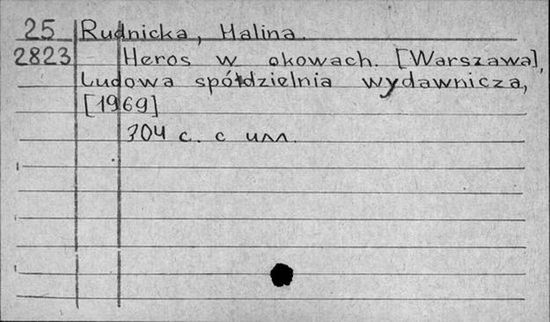 25 Rudnicka, Halina.
2823 Heros w okowach. [Warszawa],
Ludowa spółdzielnia wydawnicza,
[1969]
304 с. с илл.